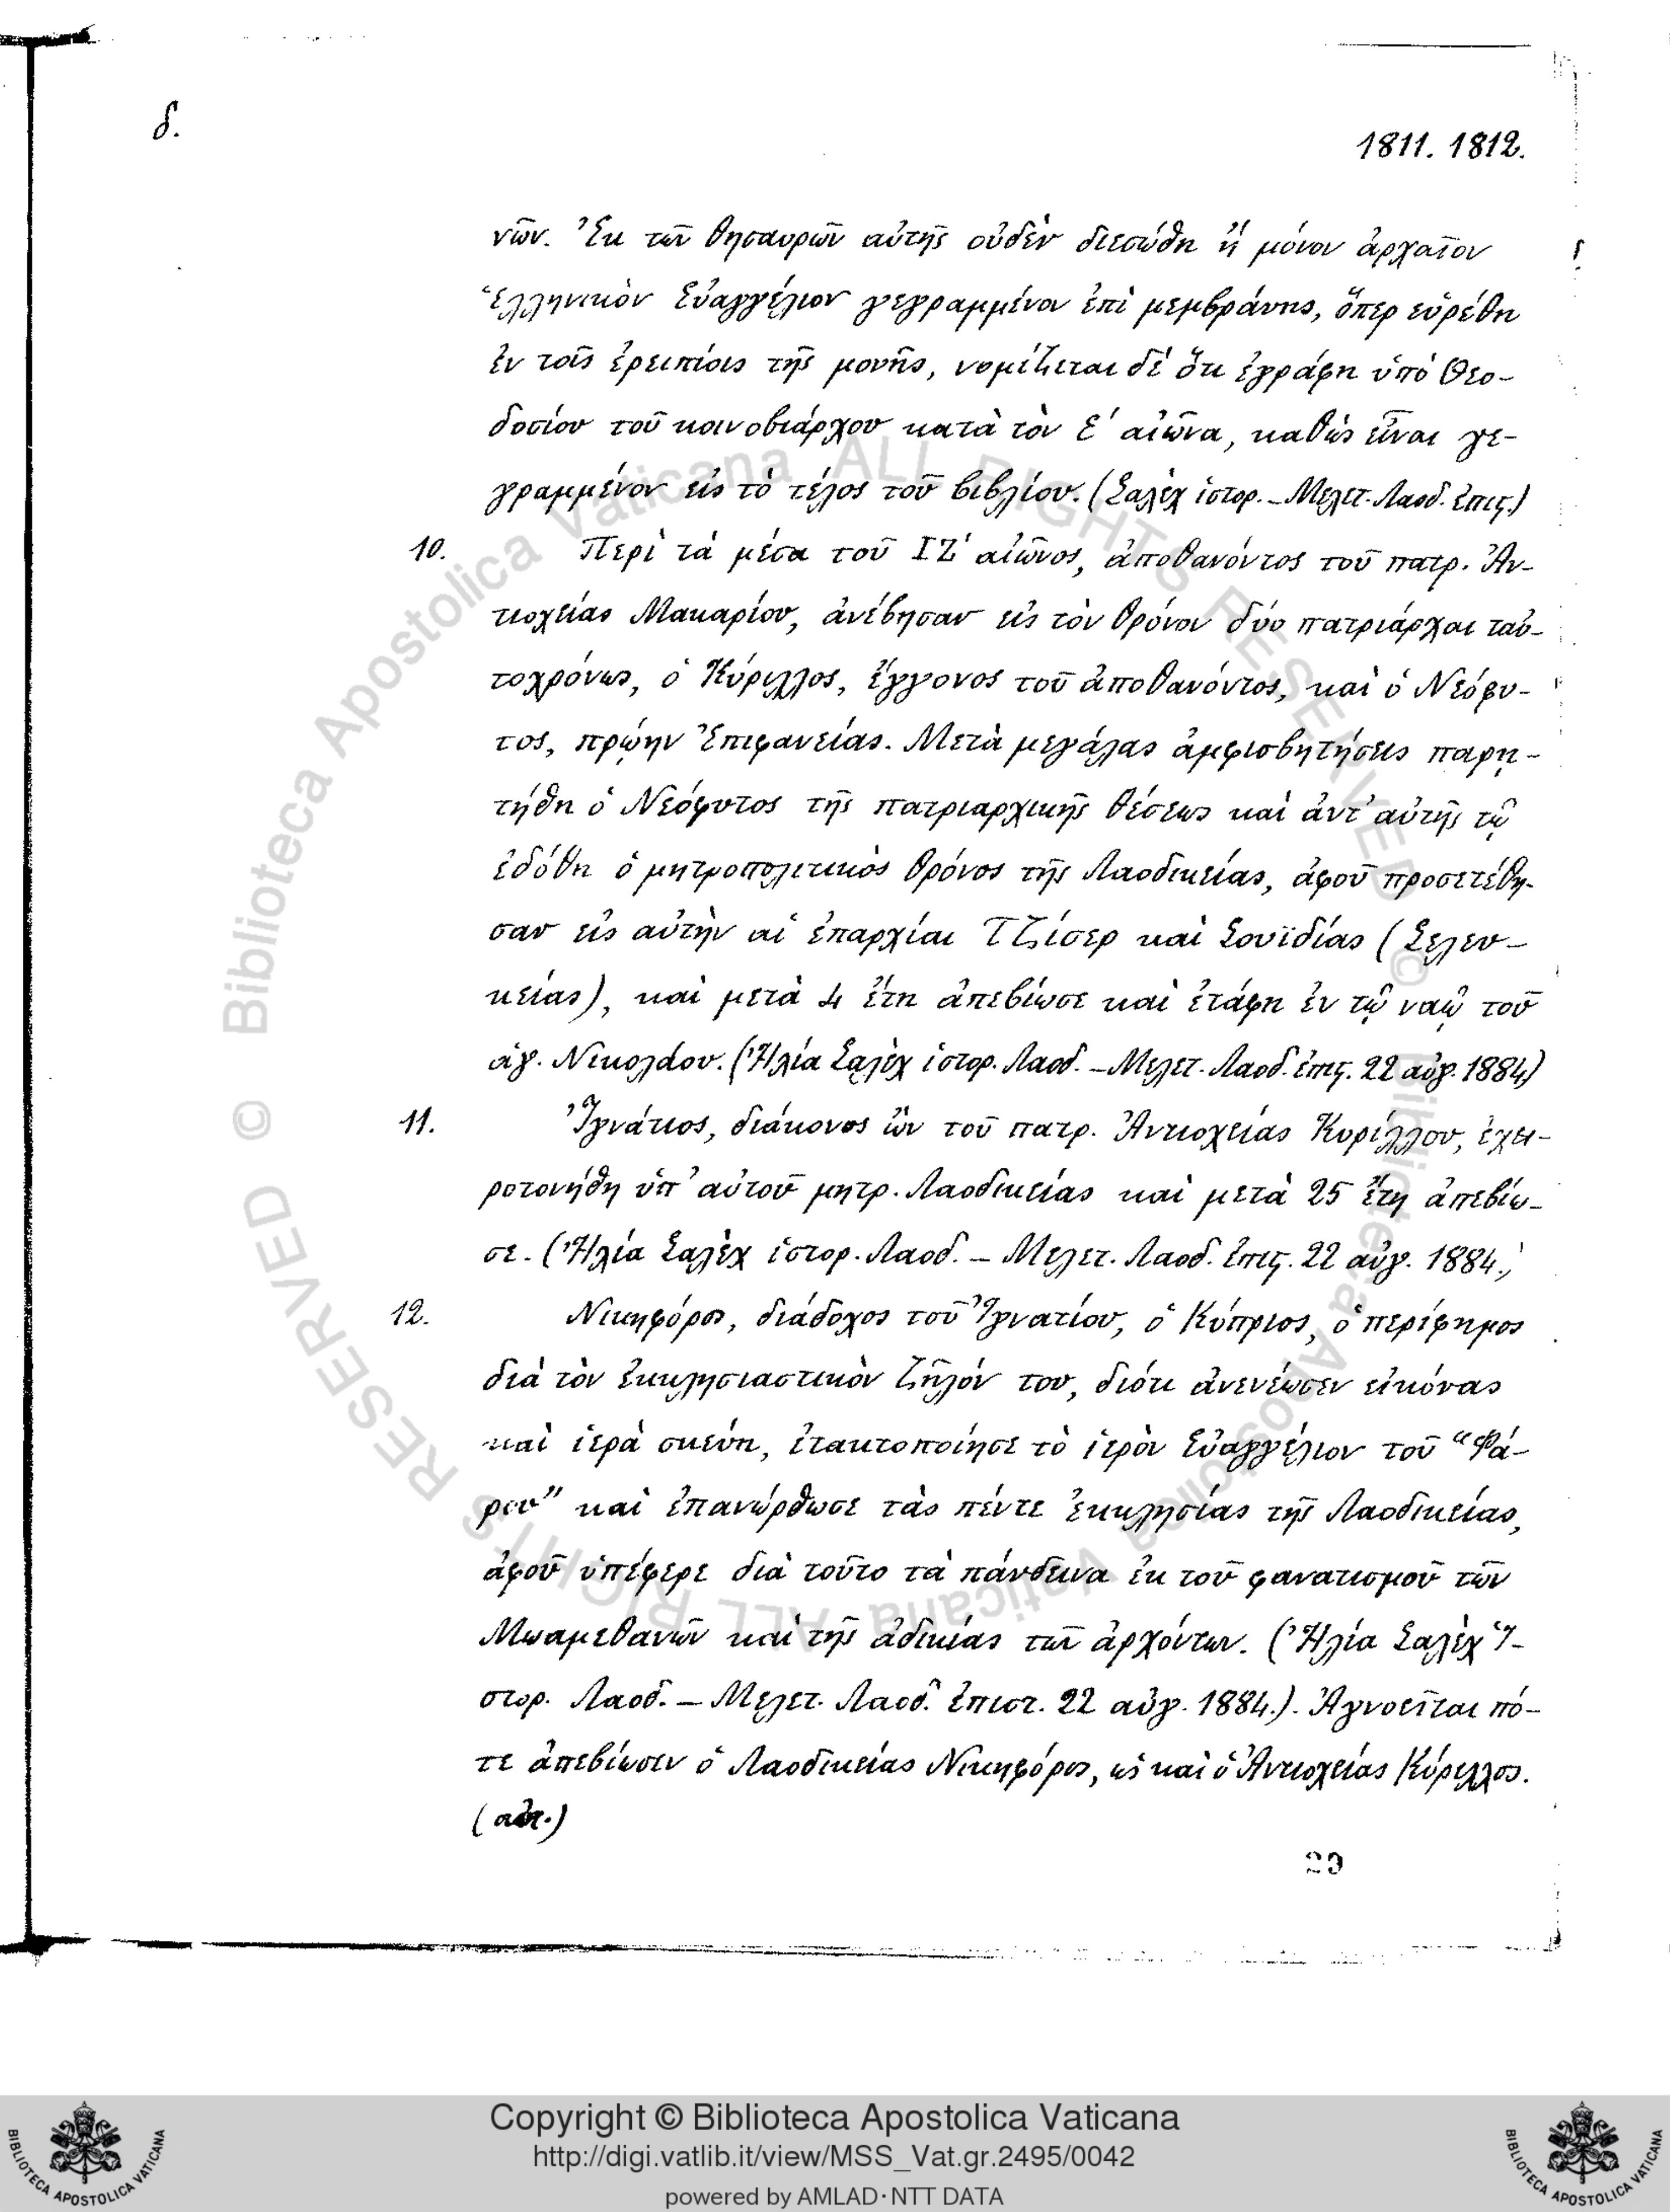 δ.
1811. 1812.
νῶν. Ἐκ τῶν θησαυρῶν αὐτῆς οὐδὲν διεσώθη ἢ μόνον ἀρχαῖον
ἑλληνικὸν Εὐαγγέλιον γεγραμμένον ἐπὶ μεμβράνης, ὅπερ εὑρέθη
ἐν τοῖς ἐρειπίοις τῆς μονῆς, νομίζεται δὲ ὅτι ἐγράφη ὑπὸ Θεο-
δοσίου τοῦ κοινοβιάρχου κατὰ τὸν Ε΄ αἰῶνα, καθὼς εἶναι γε-
γραμμένον εἰς τὸ τέλος τοῦ βιβλίου. (Σαλὲχ ἱστορ. – Μελετ. Λαοδ. ἐπις.)
10. Περὶ τὰ μέσα τοῦ ΙΖ΄ αἰῶνος, ἀποθανόντος τοῦ πατρ. Ἀν-
τιοχείας Μακαρίου, ἀνέβησαν εἰς τὸν θρόνον δύο πατριάρχαι ταὐ-
τοχρόνως, ὁ Κύριλλος, ἔγγονος τοῦ ἀποθανόντος, καὶ ὁ Νεόφυ-
τος, πρῴην Ἐπιφανείας. Μετὰ μεγάλας ἀμφισβητήσεις παρῃ-
τήθη ὁ Νεόφυτος τῆς πατριαρχικῆς θέσεως καὶ ἀντ' αὐτῆς τῷ
ἐδόθη ὁ μητροπολιτικὸς θρόνος τῆς Λαοδικείας, ἀφοῦ προσετέθη-
σαν εἰς αὐτὴν αἱ ἐπαρχίαι Τζίσερ καὶ Σουϊδίας (Σελευ-
κείας), καὶ μετὰ 4 ἔτη ἀπεβίωσε καὶ ἐτάφη ἐν τῷ ναῷ τοῦ
ἁγ. Νικολάου. (Ἠλία Σαλὲχ ἱστορ. Λαοδ. – Μελετ. Λαοδ. ἐπις. 22 αὐγ. 1884)
11. Ἰγνάτιος, διάκονος ὢν τοῦ πατρ. Ἀντιοχείας Κυρίλλου, ἐχει-
ροτονήθη ὑπ' αὐτοῦ μητρ. Λαοδικείας καὶ μετὰ 25 ἔτη ἀπεβίω-
σε. (Ἠλία Σαλὲχ ἱστορ. Λαοδ. – Μελετ. Λαοδ. ἐπις. 22 αὐγ. 1884.)
12. Νικηφόρος, διάδοχος τοῦ Ἰγνατίου, ὁ Κύπριος, ὁ περίφημος
διὰ τὸν ἐκκλησιαστικὸν ζῆλόν του, διότι ἀνενέωσεν εἰκόνας
καὶ ἱερὰ σκεύη, ἐτακτοποίησε τὸ ἱερὸν Εὐαγγέλιον τοῦ “Φά-
ρου” καὶ ἐπανώρθωσε τὰς πέντε ἐκκλησίας τῆς Λαοδικείας,
ἀφοῦ ὑπέφερε διὰ τοῦτο τὰ πάνδεινα ἐκ τοῦ φανατισμοῦ τῶν
Μωαμεθανῶν καὶ τῆς ἀδικίας τῶν ἀρχόντων. (Ἠλία Σαλὲχ Ἱ-
στορ. Λαοδ. – Μελετ. Λαοδ. ἐπιστ. 22 αὐγ. 1884.). Ἀγνοεῖται πό-
τε ἀπεβίωσεν ὁ Λαοδικείας Νικηφόρος, ὡς καὶ ὁ Ἀντιοχείας Κύριλλος.
20
© Biblioteca Apostolica Vaticana ALL RIGHTS RESERVED © Biblioteca Apostolica Vaticana ALL RIGHTS RESERVED
Copyright © Biblioteca Apostolica Vaticana
http://digi.vatlib.it/view/MSS_Vat.gr.2495/0042
powered by AMLAD·NTT DATA
BIBLIOTECA APOSTOLICA VATICANA
BIBLIOTECA APOSTOLICA VATICANA